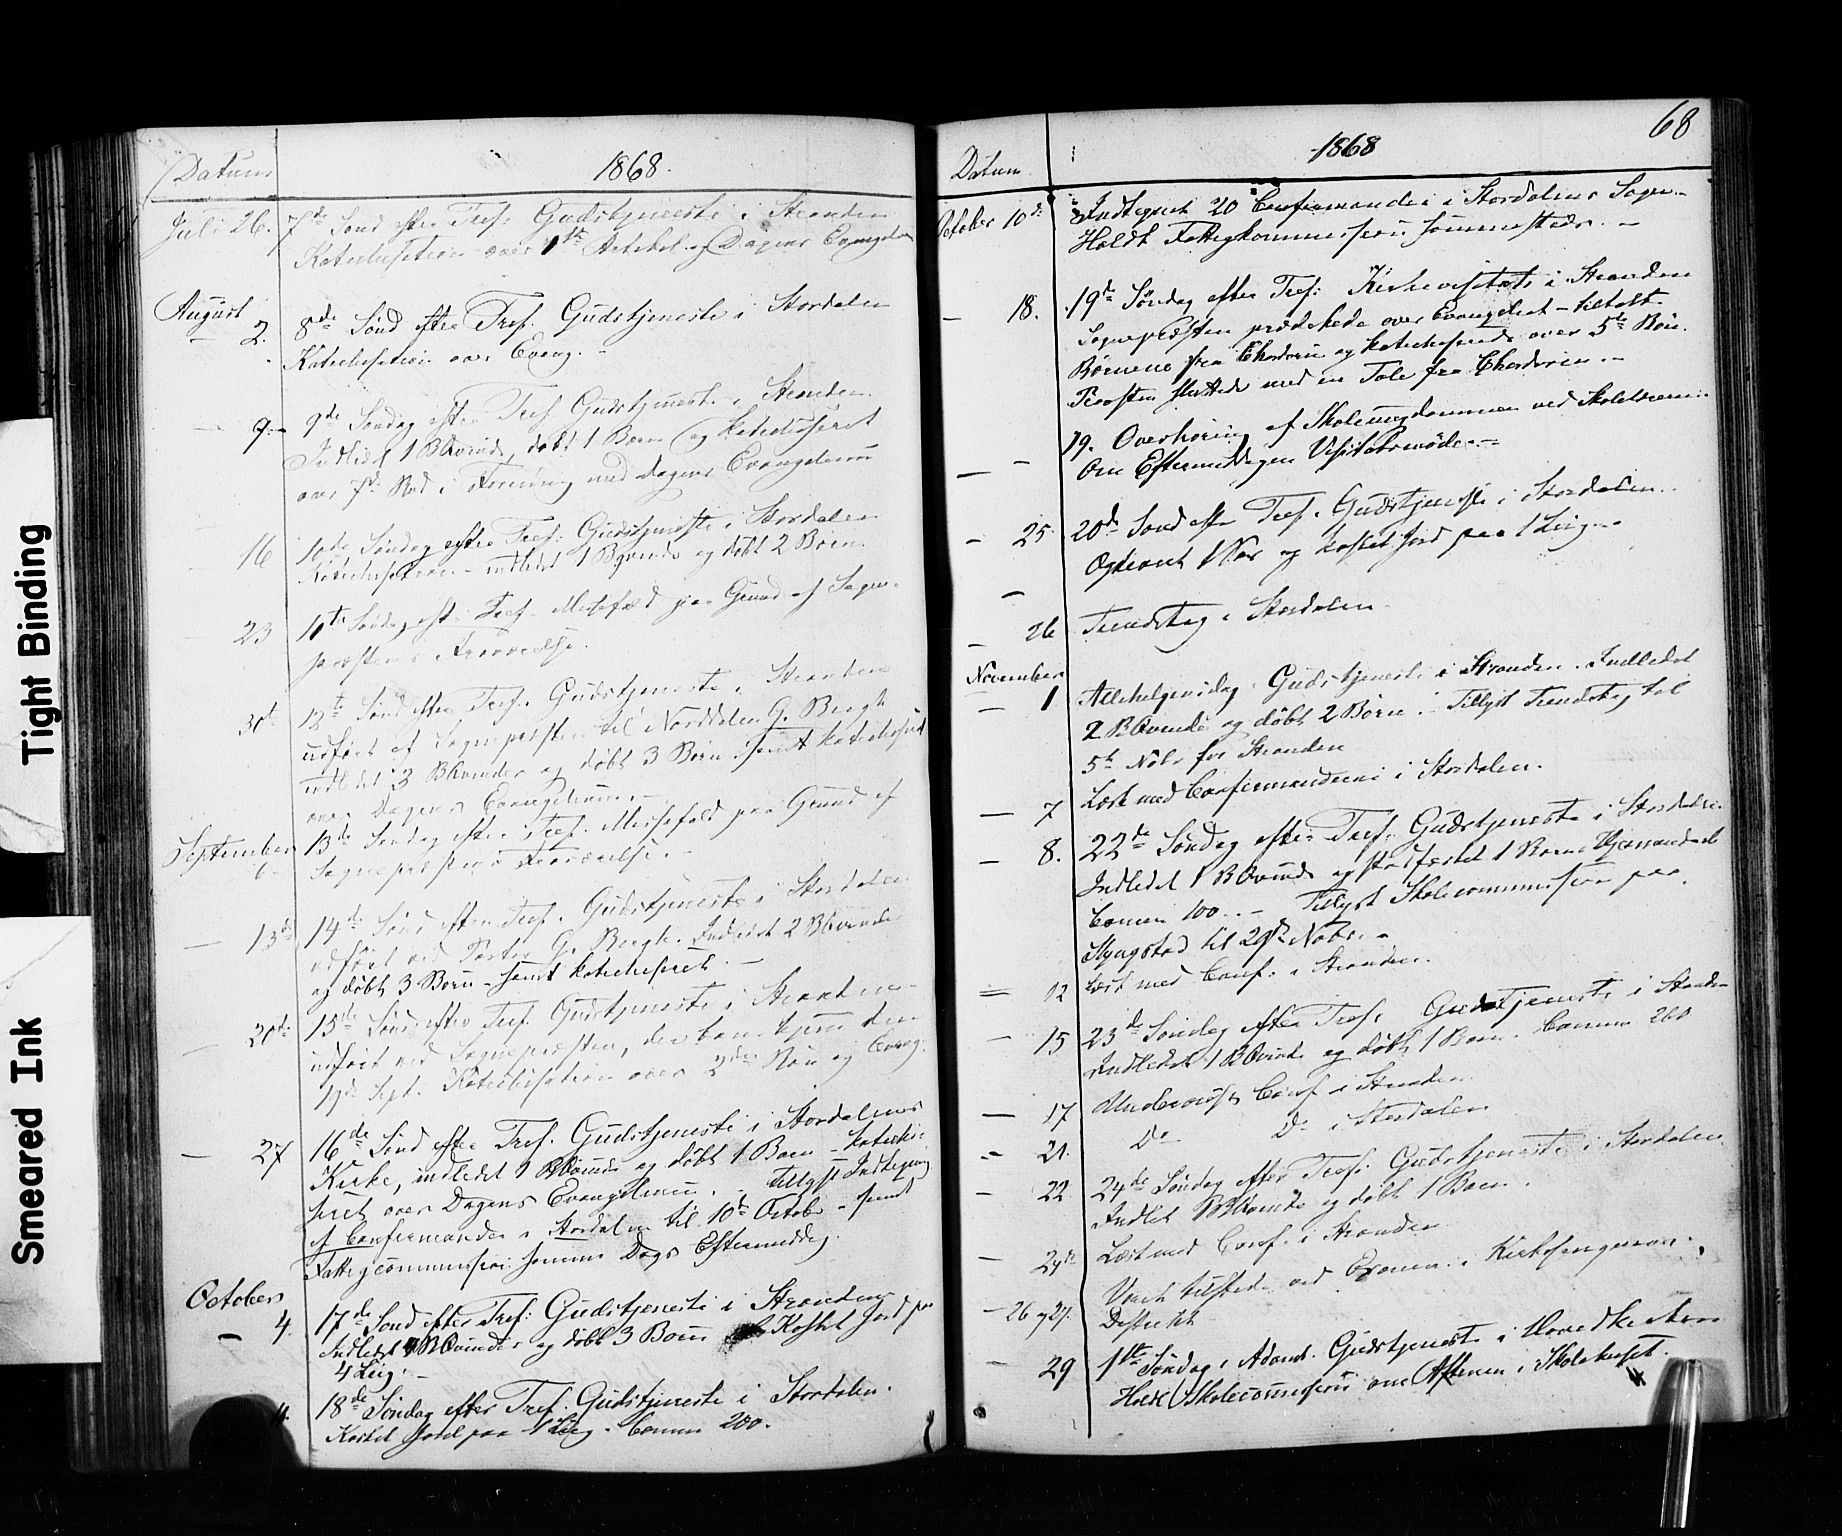 Tight Binding
Smeared Ink
Datum
1868.
Juli 26.
7de Sønd efter Tref. Gudstjeneste i Stranden
Katechisation over 1ste Artikel og Dagens Evangelium
August
2.
8de Sønd efter Tref. Gudstjeneste i Stordalen
Katechisation over Evang. -
9.
9de Søndag efter Tref Gudstjeneste i Stranden
Indledt 1 BQvinde, døbt 1 Barn og katechiseret
over 7de Bud i Forening med Dagens Evangelium
16
10de Søndag efter Tref: Gudstjeneste i Stordalen
Katechisation - indledet 1 Bqvinde og døbt 2 Børn.
23
11te Søndag eft. Tref. Messefald paa Grund af Sogne-
præstens Fraværelse.
30te
12te Sønd efter Tref. Gudstjeneste i Stranden
udført af Sognepræsten til Norddalen G. Bergh
indledet 3 BQvinder og døbt 3 Børn samt katechiseret
over Dagens Evangelium. -
September
6
13de Søndag efter Tref. Messefald paa Grund af
Sognepræstens Fraværelse. -
13de
14de Sønd efter Tref. Gudstjeneste i Stordalen
udført ved Pastor G. Bergh. Indledet 2 BQvinder
og døbt 3 Børn - samt katechiseret. -
20de
15de Sønd efter Tref. Gudstjeneste i Stranden
udført ved Sognepræsten, der kom hjem den
19de Sept. Katechisation over 2den Bøn og Evang.
27
16de Sønd efter Tref. Gudstjeneste i Stordalens
Kirke, indledet 1 BQvinde og døbt 1 Barn - katechi-
seret over Dagens Evangelium. - Tillyst Indtegning
af Confirmander i Stordalen til 10de Octobr - samt
Fattigcommission samme Dags Eftermiddag.
October
4.
17de Sønd efter Tref: Gudstjeneste i Stranden
Indledet BQvinder og døbt 3 Børn Kastet Jord paa
4 Liig. -
11.
18de Søndag efter Tref. Gudstjeneste i Stordalen.
Kastet Jord paa 1 Liig. Comm 200.
68
Datum
1868
October 10de
Indtegnet 20 Confirmander i Stordalens Sogn. -
Holdt Fattigkommission sammesteds. -
18.
19de Søndag efter Tref: Kirkevisitats i Stranden
Sognepræsten prædikede over Evangeliet - tiltalte
Børnene fra Chordøren og katechiserede over 5te Bøn.
Provsten sluttede med en Tale fra Chordøren. -
19. Overhøring af Skoleungdommen ved Skolelærerne
Om Eftermiddagen Visitatsmøde. -
25.
20de Sønd efter Tref. Gudstjeneste i Stordalen.
Ogteviet 1 Par og kastet Jord paa 1 Liig. -
26
Tiendetag i Stordalen.
November
1
Allehelgensdag Gudstjeneste i Stranden. Indledet
2 BQvinde og døbt 2 Børn. - Tillyst Tiendetag til
5te Nobr for Stranden
7
Læst med Confirmanderne i Stordalen.
8.
22de Søndag efter Tref. Gudstjeneste i Stordalen.
Indledet 1 BQvinde og stadfæstet 1 Barns Hjemmedaab
Comm 100. - Tillyst Skolecommission paa
til 29de Nobr. -
12
Læst med Conf. i Stranden.
15
23de Søndag efter Tref. Gudstjeneste i Stranden
Indledet 1 BQvinde og døbt 1 Barn. Comm 260
17
Underviist Conf i Stranden
21.
Do Do i Stordalen
22.
24de Søndag efter Tref. Gudstjeneste i Stordalen
Indlet 1 BQvinde og døbt 1 Barn.
24de
Læst med Conf. i Stranden
26 og 27.
Været tilstede ved Examen i Kirkesangerens
Distrikt
29
1ste Søndag i Advent. Gudstjeneste i Hovedkirken
Holdt Skolecommission om Aftenen i Skolehuset.